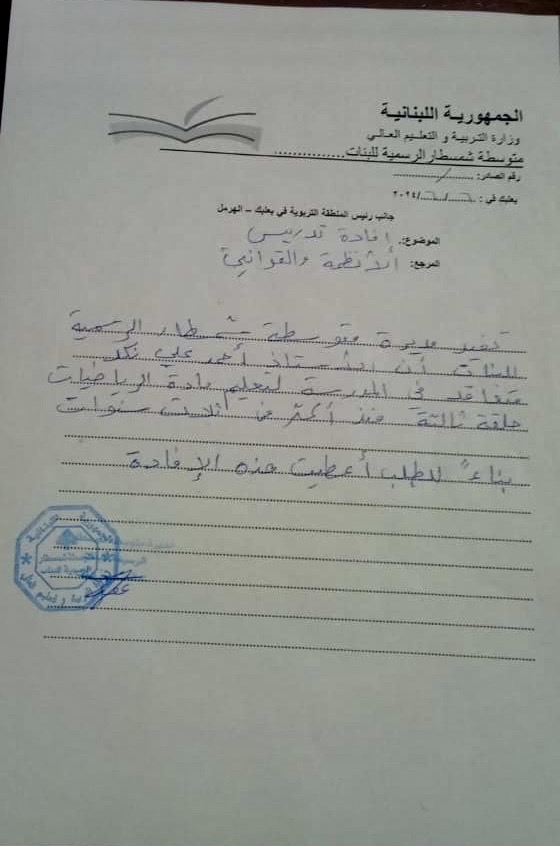 الجمهورية اللبنانية
وزارة التربية و التعليم العالي
متوسطة شمسطار الرسمية للبنات................
رقم الصادر: ............/............
بعلبك في : ....../٦../٢٠٢٤
جانب رئيس المنطقة التربوية في بعلبك – الهرمل
الموضوع: إفادة تدريس
المرجع: الأنظمة والقوانين
تفيد مديرة متوسطة شمسطار الرسمية
للبنات أن الأستاذ أحمد علي
متعاقد في المدرسة لتعليم مادة الرياضيات
حلقة ثالثة منذ أكثر من ثلاث سنوات
بناءً للطلب أعطيت هذه الإفادة
الجمهورية اللبنانية